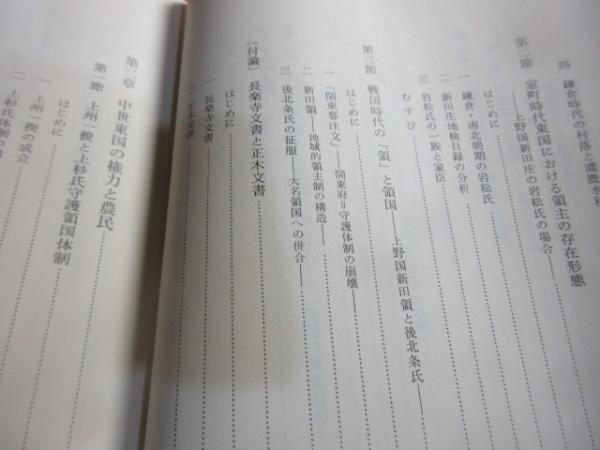 四 鎌倉時代の村落と灌漑水利
第二節 室町時代東国における領主の存在形態
——上野国新田庄の岩松氏の場合——
はじめに
一 鎌倉・南北朝期の岩松氏
二 新田庄地検目録の分析
三 岩松氏の一族と家臣
むすび
第三節 戦国時代の「領」と領国——上野国新田領と後北条氏——
はじめに
一 「関東幕注文」——関東府=守護体制の崩壊——
二 新田領——地域的領主制の構造——
三 後北条氏の征服——大名領国への併合——
〔付論〕 長楽寺文書と正木文書
はじめに
一 長楽寺文書
二 正木文書
第三章 中世東国の権力と農民
第一節 上州一揆と上杉氏守護領国体制
はじめに
一 上州一揆の成立
二 上杉氏体制の